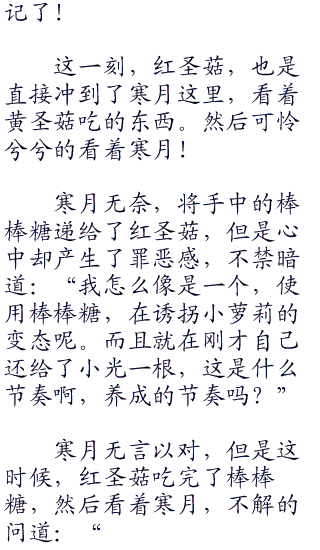 记了！
这一刻，红圣菇，也是
直接冲到了寒月这里，看着
黄圣菇吃的东西。然后可怜
兮兮的看着寒月！
寒月无奈，将手中的棒
棒糖递给了红圣菇，但是心
中却产生了罪恶感，不禁暗
道：“我怎么像是一个，使
用棒棒糖，在诱拐小萝莉的
变态呢。而且就在刚才自己
还给了小光一根，这是什么
节奏啊，养成的节奏吗？”
寒月无言以对，但是这
时候，红圣菇吃完了棒棒
糖，然后看着寒月，不解的
问道：“